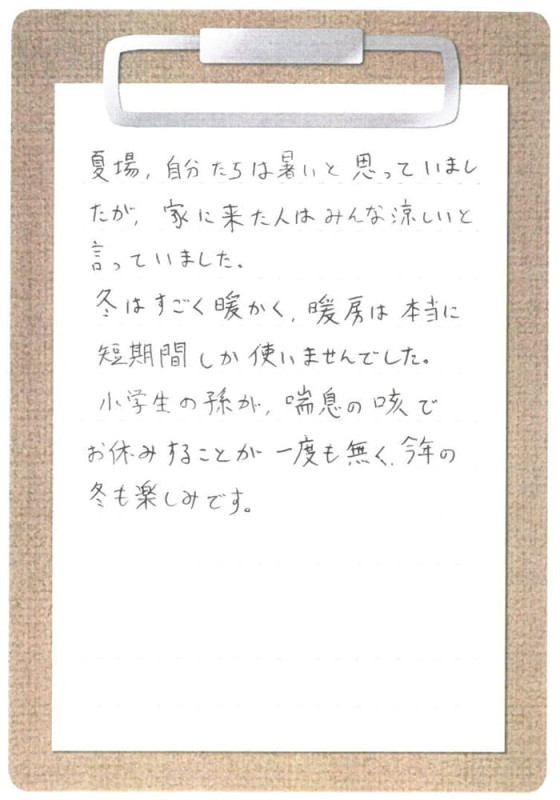 夏場,自分たちは暑いと思っていまし
たが,家に来た人はみんな涼しいと
言っていました。
冬はすごく暖かく,暖房は本当に
短期間しか使いませんでした。
小学生の孫が,喘息の咳で
お休みすることが一度も無く,今年の
冬も楽しみです。